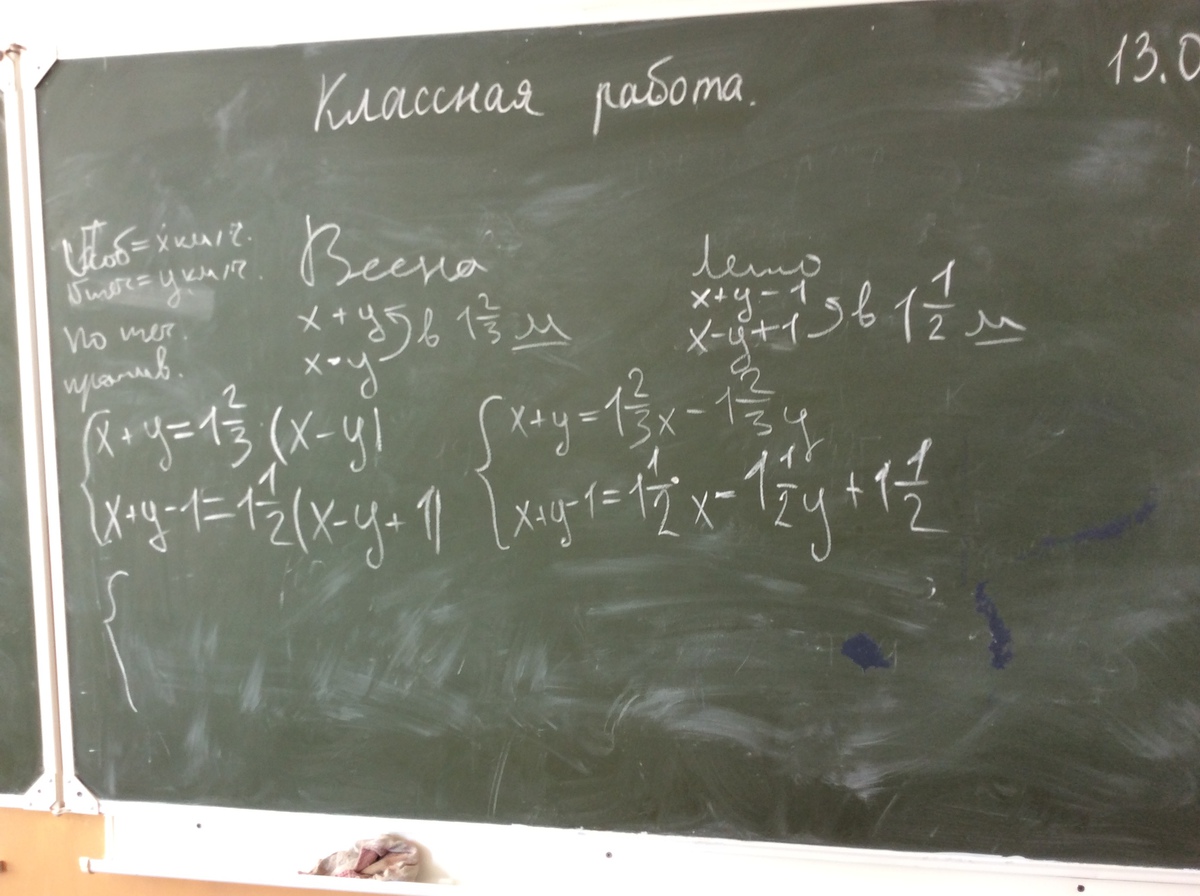 13.0
Классная работа.
Vсоб = x км/ч.
Vтеч = y км/ч.
по теч.
против.
Весна
x + y
x - y
в 1 2/3 м
Лето
x+y-1
x-y+1
в 1 1/2 м
{ x+y = 1 2/3 · (x-y)
x+y-1 = 1 1/2 (x-y+1)
{ x+y = 1 2/3 x - 1 2/3 y
x+y-1 = 1 1/2 x - 1 1/2 y + 1 1/2
{